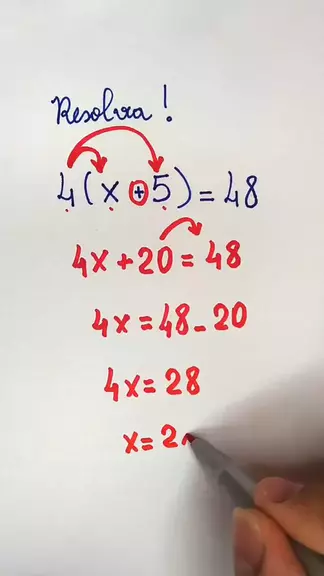 Resolva!
4(x+5)=48
4x+20=48
4x=48-20
4x=28
x=2